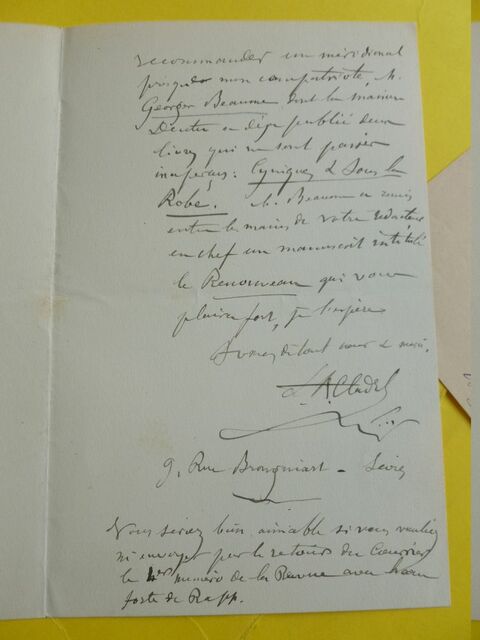 recommander un méridional
presque mon compatriote, M.
Georges Beaume dont la maison
Dentu a déjà publié deux
livres qui ne sont passés
inaperçus : Cyniques & Sous la
Robe. M. Beaume a remis
entre les mains de votre rédacteur
en chef un manuscrit intitulé
le Renouveau qui vous
plaira fort, je l'espère
de tout cœur & merci,
Cladel
9, Rue Brongniart - Sèvres
Vous seriez bien aimable si vous vouliez
m'envoyer par le retour du Courrier
le numéro de la Revue avec
forte de Rapp.